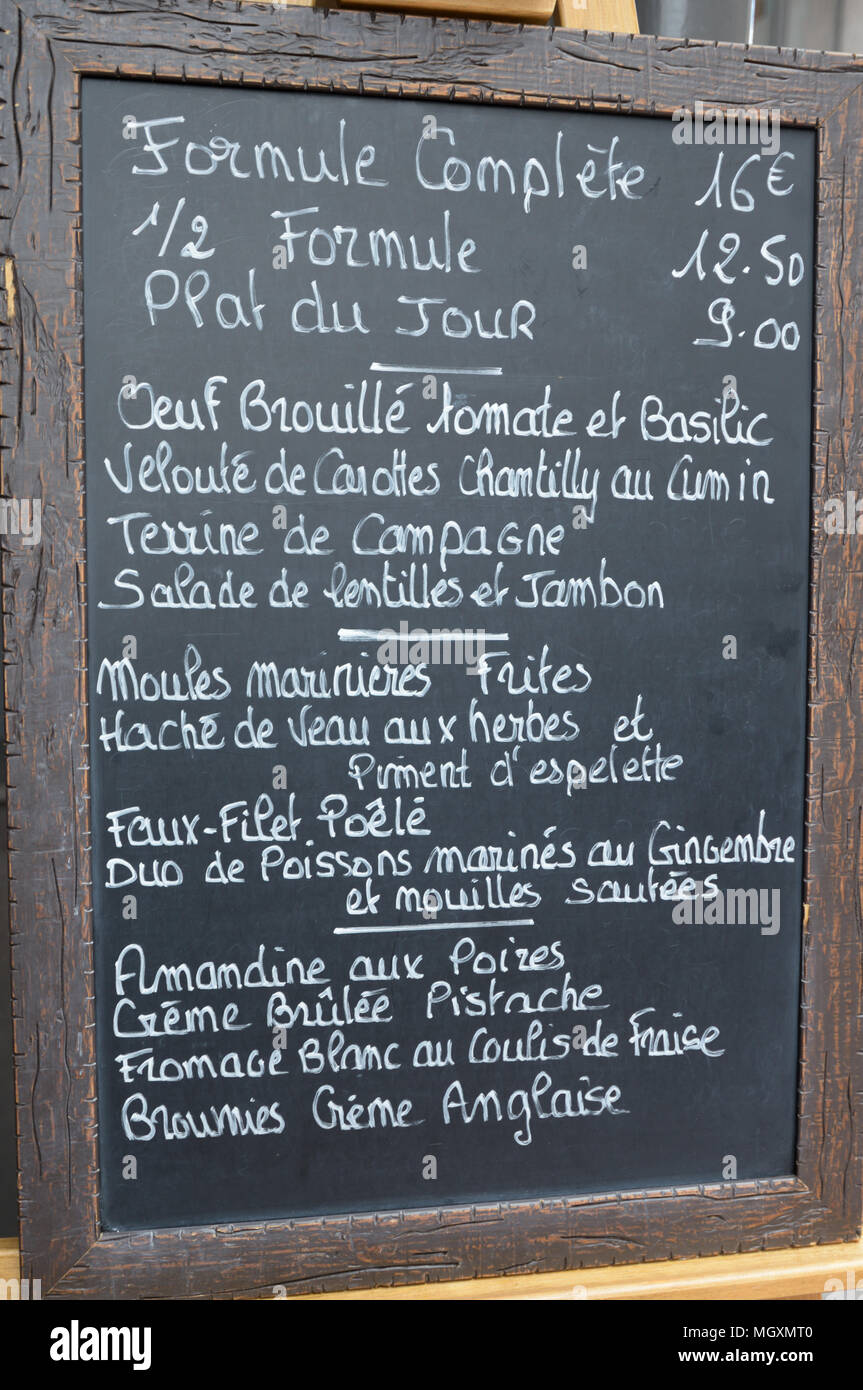 Formule Complète 16€
1/2 Formule 12.50
Plat du Jour 9.00
Oeuf Brouillé tomate et Basilic
Velouté de Carottes Chantilly au Cumin
Terrine de Campagne
Salade de lentilles et Jambon
Moules marinières Frites
Haché de Veau aux herbes et
Piment d'espelette
Faux-Filet Poêlé
Duo de Poissons marinés au Gingembre
et nouilles sautées
Amandine aux Poires
Crème Brûlée Pistache
Fromage Blanc au Coulis de Fraise
Brownies Crème Anglaise
alamy
Image ID: MGXMT0
www.alamy.com